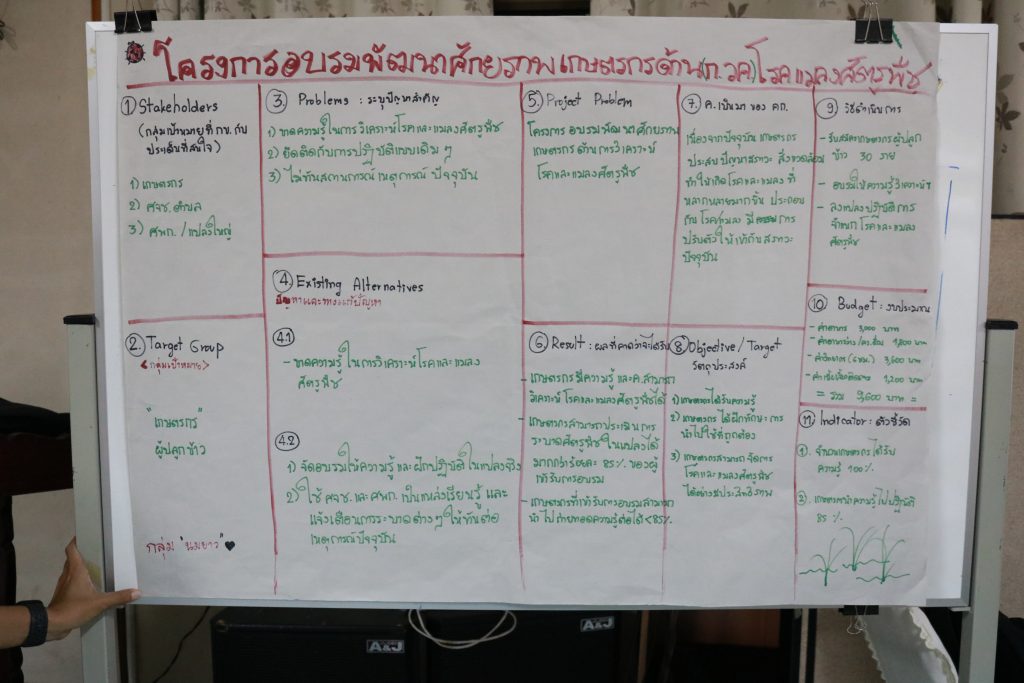 โครงการอบรมพัฒนาศักยภาพเกษตรกรด้าน(ก.วค)โรคแมลงศัตรูพืช
① Stakeholders
(กลุ่มเป้าหมายที่ กษ. กับ
ประเด็นที่สนใจ)
1) เกษตรกร
2) ศจช. ตำบล
3) ศพก. / แปลงใหญ่
② Target Group
<กลุ่มเป้าหมาย>
"เกษตรกร"
ผู้ปลูกข้าว
กลุ่ม "นมยาว" ♥
③ Problems : ระบุปัญหาสำคัญ
1) ขาดความรู้ในการวิเคราะห์โรคและแมลงศัตรูพืช
2) ยึดติดกับการปฏิบัติแบบเดิม ๆ
3) ไม่ทันสถานการณ์ เหตุการณ์ ปัจจุบัน
④ Existing Alternatives
ปัญหาและทางแก้ปัญหา
4.1
- ขาดความรู้ ในการวิเคราะห์โรคและแมลง
ศัตรูพืช
4.2
1) จัดอบรมให้ความรู้ และฝึกปฏิบัติในแปลงจริง
2) ใช้ ศจช. และ ศพก. เป็นแหล่งเรียนรู้ และ
แจ้งเตือนการระบาดต่างๆ ให้ทันต่อ
เหตุการณ์ปัจจุบัน
⑤ Project Problem
โครงการ อบรมพัฒนาศักยภาพ
เกษตรกร ด้านการวิเคราะห์
โรคและแมลงศัตรูพืช
⑥ Result : ผลที่คาดว่าจะได้รับ
- เกษตรกรมีความรู้ และ ค.สามารถ
วิเคราะห์โรคและแมลงศัตรูพืชได้
- เกษตรกรสามารถประเมินการ
ระบาดศัตรูพืชในแปลงได้
มากกว่าร้อยละ 85 % ของผู้
เข้ารับการอบรม
- เกษตรกรที่เข้ารับการอบรมสามารถ
นำไปถ่ายทอดความรู้ต่อได้ < 85%
⑦ ค.เป็นมา ของ คก.
เนื่องจากปัจจุบัน เกษตรกร
ประสบปัญหาสภาวะ สิ่งแวดล้อม
ทำให้เกิดโรคและแมลง ที่
หลากหลายมากขึ้น ประกอบ
กับโรค/แมลง มีการ
ปรับตัวให้เข้ากับสภาวะ
ปัจจุบัน
⑧ Objective / Target
วัตถุประสงค์
1) เกษตรกรได้รับความรู้
2) เกษตรกร ได้ฝึกทักษะ การ
นำไปใช้ที่ถูกต้อง
3) เกษตรกรสามารถจัดการ
โรคและแมลงศัตรูพืช
ได้อย่างมีประสิทธิภาพ
⑨ วิธีดำเนินการ
- รับสมัครเกษตรกรผู้ปลูก
ข้าว 30 ราย
- อบรมให้ความรู้วิเคราะห์ฯ
- ลงแปลงปฏิบัติการ
จำแนกโรคและแมลง
ศัตรูพืช
⑩ Budget : งบประมาณ
- ค่าอาหาร 3,000 บาท
- ค่าอาหารว่าง/คร.ดื่ม 1,800 บาท
- ค่าวิทยากร (6 ชม.) 3,600 บาท
- 1,200 บาท
= รวม 9,600 บาท =
⑪ Indicator : ตัวชี้วัด
①. จำนวนเกษตรกรได้รับ
ความรู้ 100 %
②. เกษตรกรนำความรู้ไปปฏิบัติ
85 %
A&J
A&J